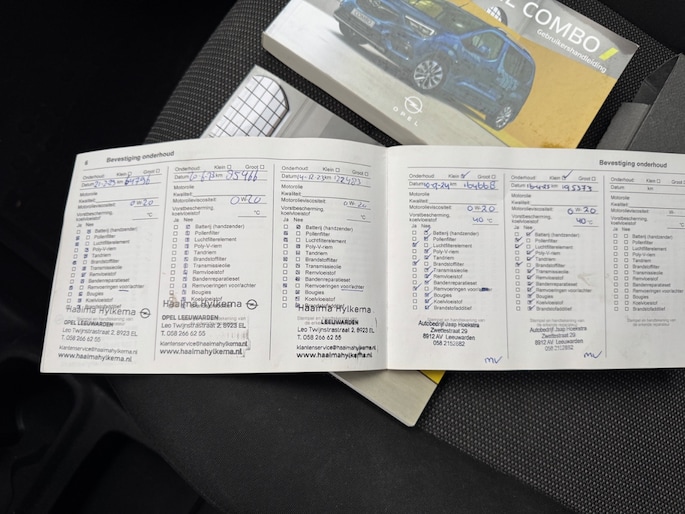 EL COMBO
Gebruikershandleiding
OPEL
6 Bevestiging onderhoud
Onderhoud: Klein Groot
Datum km 64796
Motorolie
Kwaliteit:
Motorolieviscositeit: 0W20
Vorstbescherming, koelvloeistof °C
Ja Nee
Batterij (handzender)
Pollenfilter
Luchtfilterelement
Poly-V-riem
Tandriem
Brandstoffilter
Transmissieolie
Remvloeistof
Bandenreparatieset
Remvoeringen voor/achter
Bougies
Koelvloeistof
Haaima Hylkema
OPEL LEEUWARDEN
Leo Twijnstrastraat 2, 8923 EL
T. 058 266 62 55
klantenservice@haaimahylkema.nl
www.haaimahylkema.nl
Onderhoud: Klein Groot
Datum km
Motorolie
Kwaliteit:
Motorolieviscositeit: 0W20
Vorstbescherming, koelvloeistof °C
Ja Nee
Batterij (handzender)
Pollenfilter
Luchtfilterelement
Poly-V-riem
Tandriem
Brandstoffilter
Transmissieolie
Remvloeistof
Bandenreparatieset
Remvoeringen voor/achter
Bougies
Koelvloeistof
Haaima Hylkema
OPEL LEEUWARDEN
Leo Twijnstrastraat 2, 8923 EL
T. 058 266 62 55
klantenservice@haaimahylkema.nl
www.haaimahylkema.nl
Onderhoud: Klein Groot
Datum km
Motorolie
Kwaliteit:
Motorolieviscositeit: 0W20
Vorstbescherming, koelvloeistof °C
Ja Nee
Batterij (handzender)
Pollenfilter
Luchtfilterelement
Poly-V-riem
Tandriem
Brandstoffilter
Transmissieolie
Remvloeistof
Bandenreparatieset
Remvoeringen voor/achter
Bougies
Koelvloeistof
Haaima Hylkema
LEEUWARDEN
Leo Twijnstrastraat 2, 8923 EL
T. 058 266 62 55
klantenservice@haaimahylkema.nl
www.haaimahylkema.nl
Bevestiging onderhoud
Onderhoud: Klein Groot
Datum km
Motorolie
Kwaliteit:
Motorolieviscositeit: 0W20
Vorstbescherming, koelvloeistof 40 °C
Ja Nee
Batterij (handzender)
Pollenfilter
Luchtfilterelement
Poly-V-riem
Tandriem
Brandstoffilter
Transmissieolie
Remvloeistof
Bandenreparatieset
Remvoeringen voor/achter
Bougies
Koelvloeistof
Brandstofadditief
Autobedrijf Jaap Hoekstra
Zwettestraat 29
8912 AV Leeuwarden
058 2152882
Onderhoud: Klein Groot
Datum km 195373
Motorolie
Kwaliteit:
Motorolieviscositeit: 0W20
Vorstbescherming, koelvloeistof 40 °C
Ja Nee
Batterij (handzender)
Pollenfilter
Luchtfilterelement
Poly-V-riem
Tandriem
Brandstoffilter
Transmissieolie
Remvloeistof
Bandenreparatieset
Remvoeringen voor/achter
Bougies
Koelvloeistof
Brandstofadditief
Autobedrijf Jaap Hoekstra
Zwettestraat 29
8912 AV Leeuwarden
058 2152882
Onderhoud: Klein Groot
Datum km
Motorolie
Kwaliteit:
Motorolieviscositeit:
Vorstbescherming, koelvloeistof
Ja Nee
Batterij (handzender)
Pollenfilter
Luchtfilterelement
Poly-V-riem
Tandriem
Brandstoffilter
Transmissieolie
Remvloeistof
Bandenreparatieset
Remvoeringen voor/achter
Bougies
Koelvloeistof
Brandstofadditief